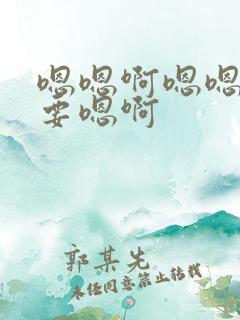 嗯嗯啊嗯嗯
要嗯啊
郭某先
未经同意禁止转载